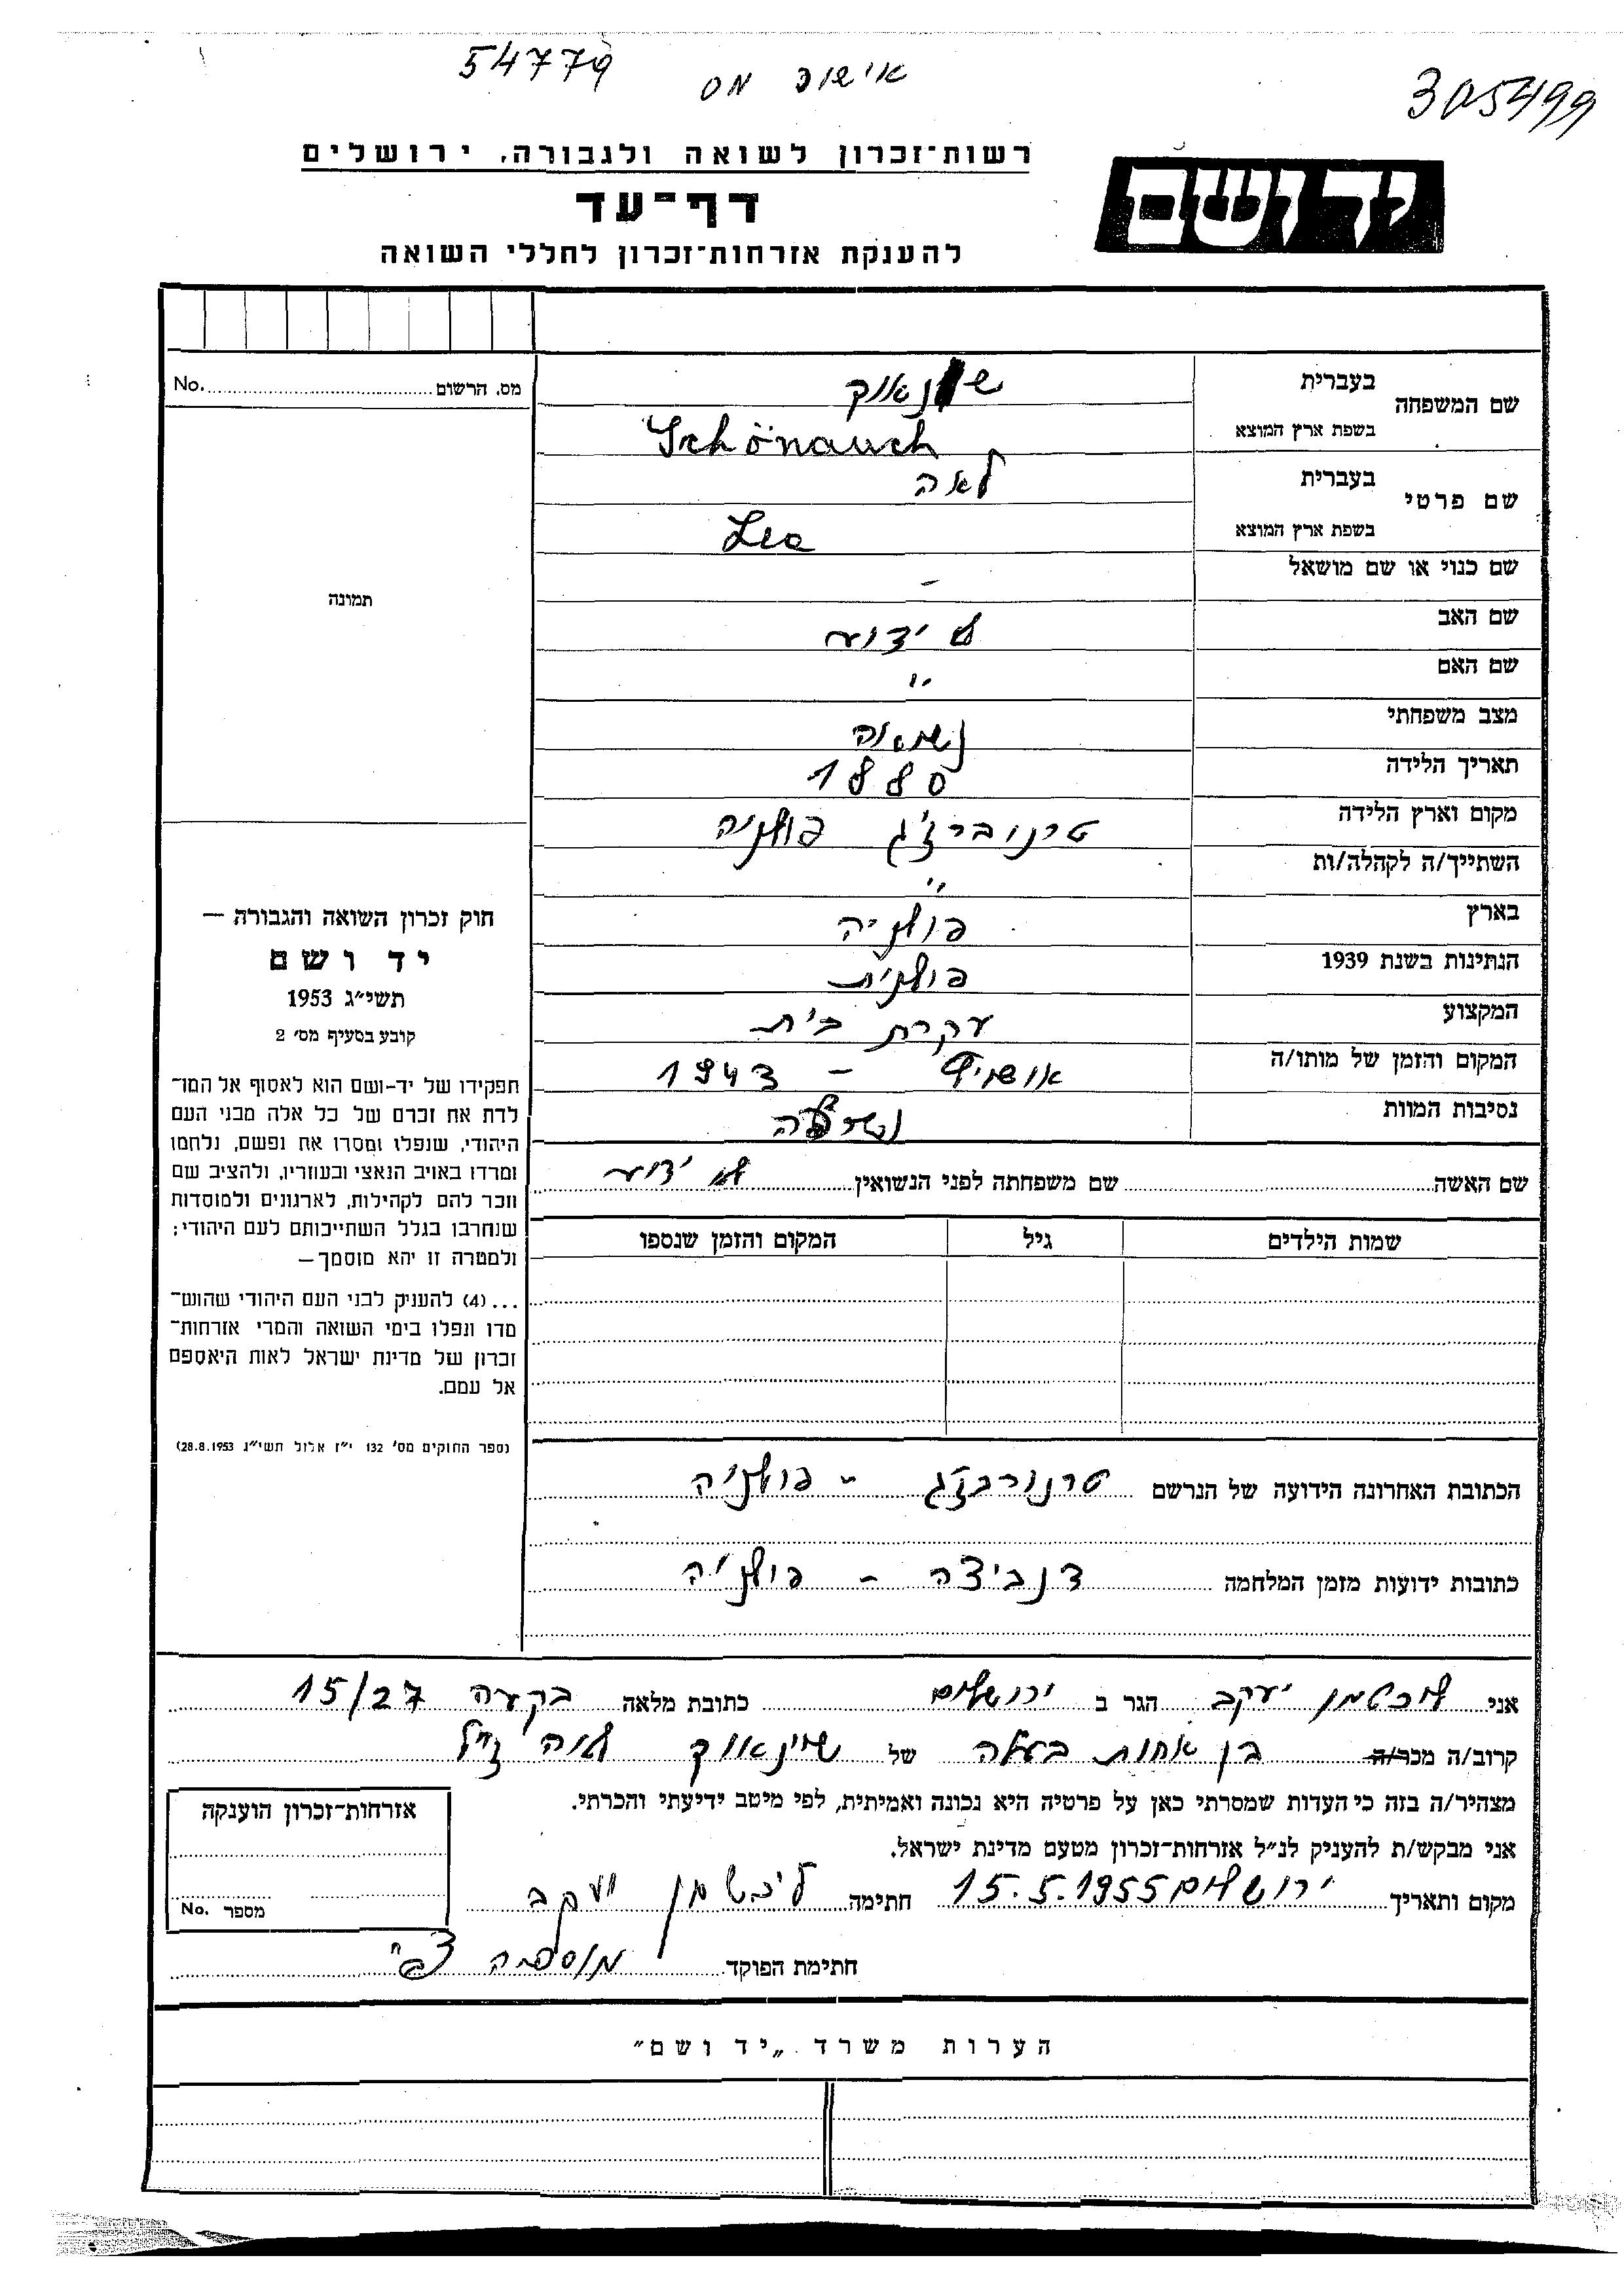 54779
אישור מס
305499
רשות־זכרון לשואה ולגבורה, ירושלים
יד ושם
דף־עד
להענקת אזרחות־זכרון לחללי השואה
מס. הרשום No.
תמונה
חוק זכרון השואה והגבורה —
יד ושם
תשי״ג 1953
קובע בסעיף מס׳ 2
תפקידו של יד-ושם הוא לאסוף אל המו־
לדת את זכרם של כל אלה מבני העם
היהודי, שנפלו ומסרו את נפשם, נלחמו
ומרדו באויב הנאצי ובעוזריו, ולהציב שם
וזכר להם לקהילות, לארגונים ולמוסדות
שנחרבו בגלל השתייכותם לעם היהודי;
ולמטרה זו יהא מוסמך—
...(4) להעניק לבני העם היהודי שהוש־
מדו ונפלו בימי השואה והמרי אזרחות־
זכרון של מדינת ישראל לאות היאספם
אל עמם.
(ספר החוקים מס׳ 132 י״ז אלול תשי״ג 28.8.1953)
שם המשפחה
בעברית שינאוק
בשפת ארץ המוצא Schönauch
שם פרטי
בעברית לאה
בשפת ארץ המוצא Lea
שם כנוי או שם מושאל –
שם האב לא ידוע
שם האם "
מצב משפחתי נשואה
תאריך הלידה 1880
מקום וארץ הלידה טרנוברז'ג פולניה
השתייך/ה לקהלה/ות "
בארץ פולניה
הנתינות בשנת 1939 פולנית
המקצוע עקרת בית
המקום והזמן של מותו/ה אושויץ – 1943
נסיבות המוות נשרפה
שם האשה שם משפחתה לפני הנשואין לא ידוע
שמות הילדים גיל המקום והזמן שנספו
הכתובת האחרונה הידועה של הנרשם טרנוברז'ג – פולניה
כתובות ידועות מזמן המלחמה דנביצה – פולניה
אני ליכטמן יעקב הגר ב ירושלים כתובת מלאה בקעה 15/27
קרוב/ה מכר/ה בן אחות בעלה של שינאוק לאה ז"ל
מצהיר/ה בזה כי העדות שמסרתי כאן על פרטיה היא נכונה ואמיתית, לפי מיטב ידיעתי והכרתי.
אני מבקש/ת להעניק לנ״ל אזרחות־זכרון מטעם מדינת ישראל.
מקום ותאריך ירושלים 15.5.1955 חתימה ליכטמן יעקב
חתימת הפוקד
אזרחות־זכרון הוענקה
מספר No.
הערות משרד „יד ושם״